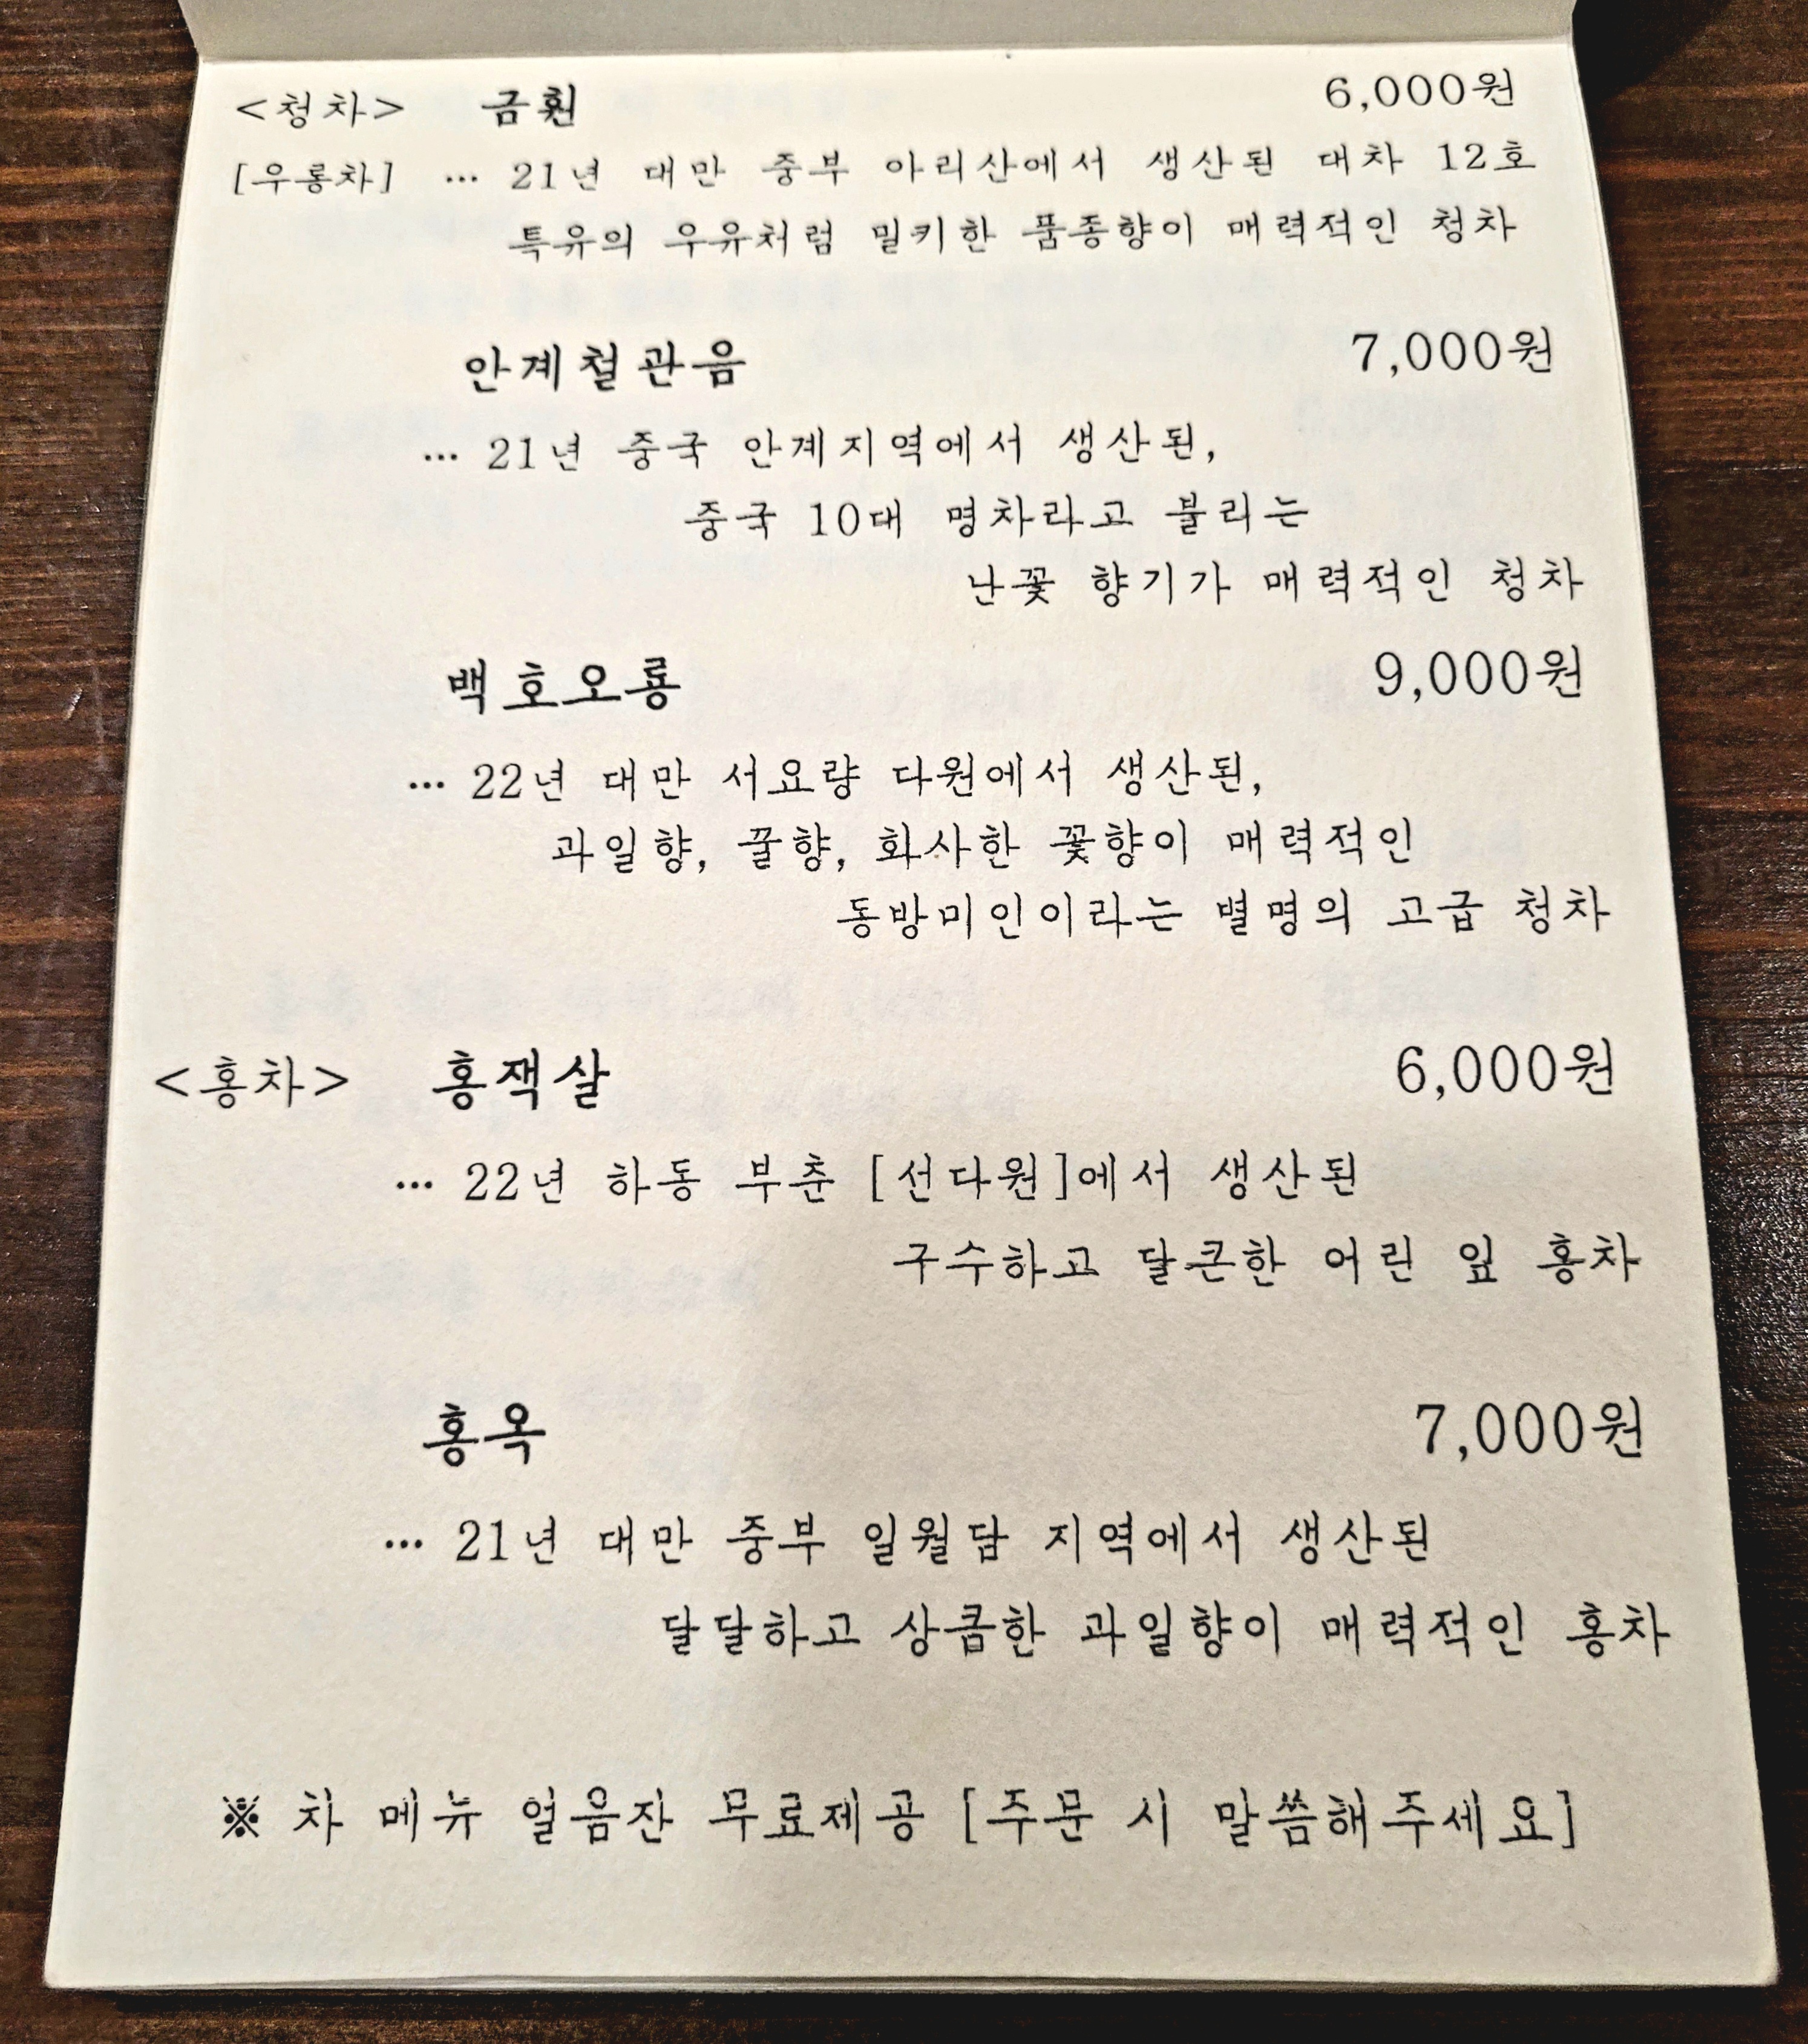 <청차> 금훤 6,000원
[우롱차] … 21년 대만 중부 아리산에서 생산된 대차 12호
특유의 우유처럼 밀키한 품종향이 매력적인 청차
안계철관음 7,000원
… 21년 중국 안계지역에서 생산된,
중국 10대 명차라고 불리는
난꽃 향기가 매력적인 청차
백호오룡 9,000원
… 22년 대만 서요량 다원에서 생산된,
과일향, 꿀향, 화사한 꽃향이 매력적인
동방미인이라는 별명의 고급 청차
<홍차> 홍잭살 6,000원
… 22년 하동 부춘 [선다원]에서 생산된
구수하고 달큰한 어린 잎 홍차
홍옥 7,000원
… 21년 대만 중부 일월담 지역에서 생산된
달달하고 상큼한 과일향이 매력적인 홍차
※ 차 메뉴 얼음잔 무료제공 [주문 시 말씀해주세요]